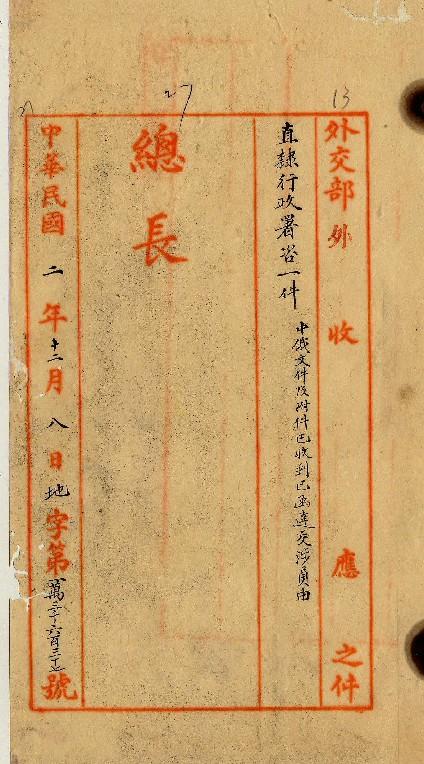 27
13
外交部外收應之件
直隸行政署咨一件
中俄文件及附件已收到已函達交涉員由
總長
中華民國二年十二月八日地字第萬三千六百三十七號